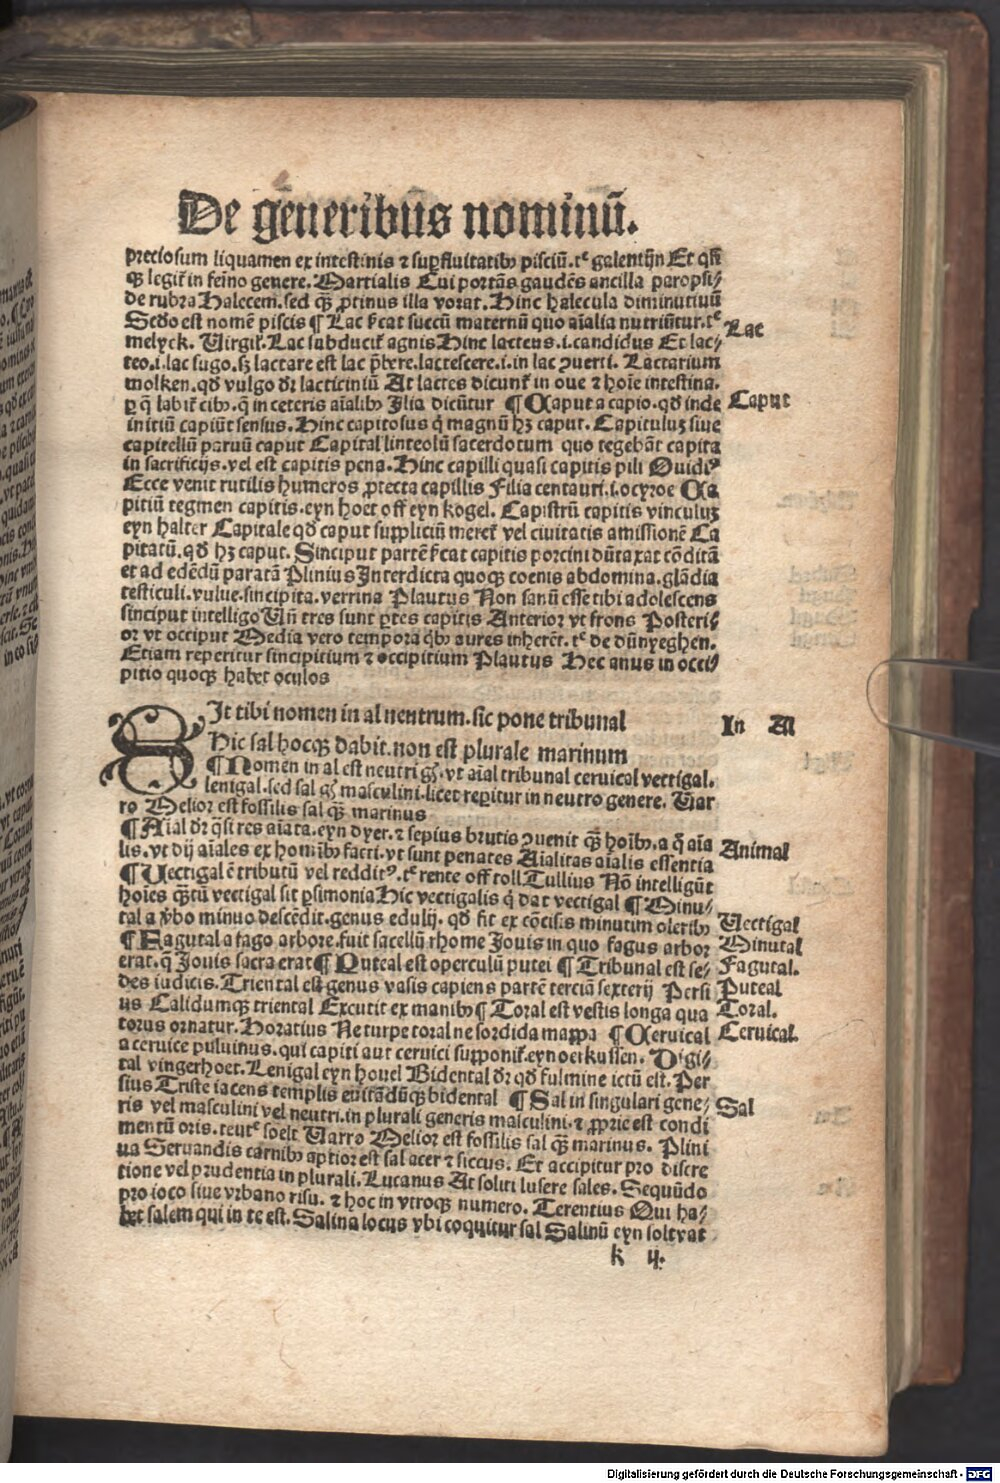 De gēneribus nominū.
preciosum liquamen ex intestinis ⁊ suꝑfluitatibꝰ pisciū.tᵉ galentijn Et qn̄
qꝫ legit᷑ in feīno genere. Martialis Cui portās gaudēs ancilla paropsi⸗
de rubra Halecem.sed qꝫ ꝓtinus illa vorat. Hinc halecula diminutiuū
Scd̄o est nomē piscis ¶ Lac sc̄at succū maternū quo aīalia nutriūtur.tᵉ
Lac
melyck. Uirgiꝉ. Lac subducit᷑ agnis Hinc lacteus.i.candidus Et lac⸗
teo.i.lac sugo.sꝫ lactare est lac p̄bere.lactescere.i.in lac ꝯuerti. Lactarium
molken.qd̄ vulgo dr̄ lacticiniū At lactes dicunt᷑ in oue ⁊ hoīe intestina.
ꝑ q̄ labit᷑ cibꝰ.q̄ in ceteris aīalibꝰ Ilia dicūtur ¶ Caput a capio.qd̄ inde
Caput
initiū capiūt sensus. Hinc capitosus q̇ magnū hꝫ caput. Capitulūꝫ siue
capitellū paruū caput Capital linteolū sacerdotum quo tegebāt capita
in sacrificijs.vel est capitis pena. Hinc capilli quasi capitis pili Ouidiꝰ
Ecce venit rutilis humeros ꝓtecta capillis Filia centauri.i.ocyroe Ca
pitiū tegmen capitis.eyn hoet off eyn kogel. Capistrū capitis vinculuꝫ
eyn halter Capitale qd̄ caput suppliciū meret᷑ vel ciuitatis amissionē Ca
pitatū.qd̄ hꝫ caput. Sinciput partē sc̄at capitis porcini dūtaxat cōditā
et ad edēdū paratā Plinius Interdicta quoqꝫ coenis abdomina.glādia
testiculi.vulue.sincipita.verrina Plautus Non sanū esse tibi adolescens
sinciput intelligo Un̄ tres sunt ꝑtes capitis Anterior vt frons Posteri⸗
or vt occiput Media vero tempora qībꝰ aures inherēt.tᵉ de dūnyeghen.
Etiam reperitur sincipitium ⁊ occipitium Plautus Hec anus in occi⸗
pitio quoqꝫ habet oculos
SIt tibi nomen in al neutrum.sic pone tribunal
In Al
Hic sal hocqꝫ dabit.non est plurale marinum
¶ Nomen in al est neutri gn̄s.vt aīal tribunal ceruical vectigal.
lenigal.sed sal gn̄s masculini.licet reꝑitur in neutro genere. Uar
ro Melior est fossilis sal qꝫ marinus
¶ Aīal dr̄ qsi res aīata.eyn dyer.⁊ sepius brutis ꝯuenit qꝫ hoībꝰ.a q̄ aīa
lis.vt dij aīales ex homībꝰ facti.vt sunt penates Aīalitas aīalis essentia
Animal
¶ Uectigal ē tributū vel redditꝰ.tᵉ rente off toll Tullius Nō intelligūt
hoīes qꝫtū vectigal sit ꝑsimonia Hic vectigalis q̇ dat vectigal ¶ Minu⸗
Uectigal
tal a ꝟbo minuo descēdit.genus edulij. qd̄ fit ex cōcisis minutim oleribꝰ
Minutal
¶ Fagutal a fago arbore.fuit sacellū rhome Jouis in quo fagus arbor
Fagutal.
erat.q̄ Jouis sacra erat ¶ Puteal est operculū putei ¶ Tribunal est se⸗
Puteal
des iudicis. Triental est genus vasis capiens partē terciā sexterij Persi
us Calidumqꝫ triental Excutit ex manibꝰ ¶ Toral est vestis longa qua
Toral.
torus ornatur. Horatius Ne turpe toral ne sordida mappa ¶ Ceruical
Ceruical.
a ceruice puluinus.qui capiti aut ceruici supponit᷑.eyn oerkussen. Digi⸗
tal vingerhoet. Lenigal eyn houel Bidental dr̄ qd̄ fulmine ictū est. Per
sius Triste iacens templis euitādūqꝫ bidental ¶ Sal in singulari gene⸗
Sal
ris vel masculini vel neutri.in plurali generis masculini.⁊ ꝓprie est condi
mentū oris.teutᵉ soelt Uarro Melior est fossilis sal qꝫ marinus. Plini
us Seruandis carnibꝰ aptior est sal acer ⁊ siccus. Et accipitur pro discre
tione vel prudentia in plurali. Lucanus At soliti lusere sales. Sequūdo
pro ioco siue vrbano risu. ⁊ hoc in vtroqꝫ numero. Terentius Qui ha⸗
bet salem qui in te est. Salina locus vbi coquitur sal Salinū eyn soltvat
k ij.
Digitalisierung gefördert durch die Deutsche Forschungsgemeinschaft - DFG